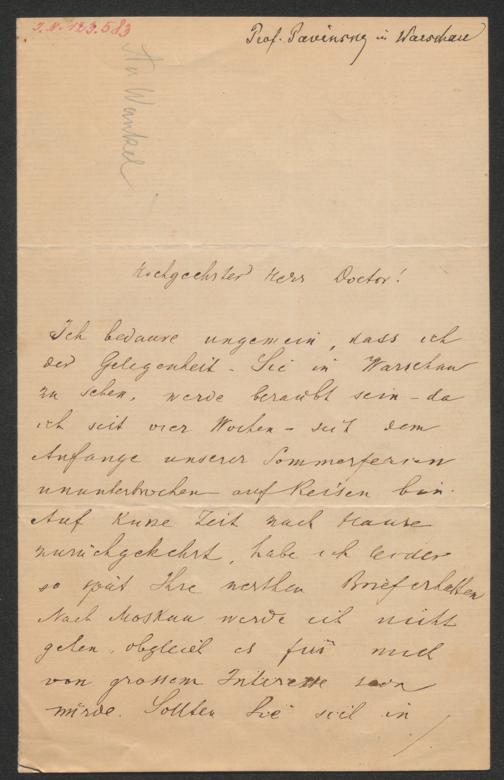 I.N. 123.583
Prof. Pavinsky in Warschau
An Wankel
Hochgeehrter Herr Doctor!
Ich bedaure ungemein, dass ich
der Gelegenheit - Sie in Warschau
zu sehen, werde beraubt sein - da
ich seit vier Wochen - seit dem
Anfange unserer Sommerferien
ununterbrochen auf Reisen bin.
Auf kurze Zeit nach Hause
zurückgekehrt, habe ich leider
so spät Ihre werthen Brief erhalten
Nach Moskau werde ich nicht
gehen, obgleich es für mich
von grossem Interesse sein
würde. Sollten Sie sich in